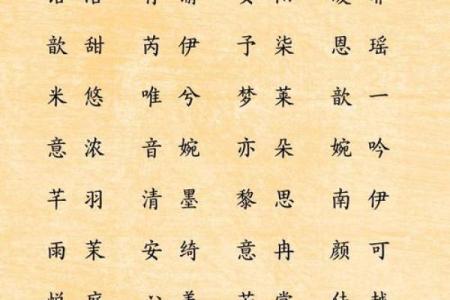 歆甜 芮伊 予柒 恩瑶
米悠 唯兮 梦莱 歆一
意浓 音婉 亦朵 婉吟
芊羽 清墨 黎思 南伊
雨茉 安绮 意冉 颜可